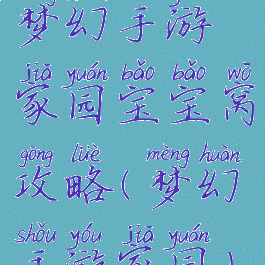 梦幻手游
jiā yuán bǎo bǎo wō
家园宝宝窝
gōng lüè mèng huàn
攻略(梦幻
shǒu yóu jiā yuán
手游家园)